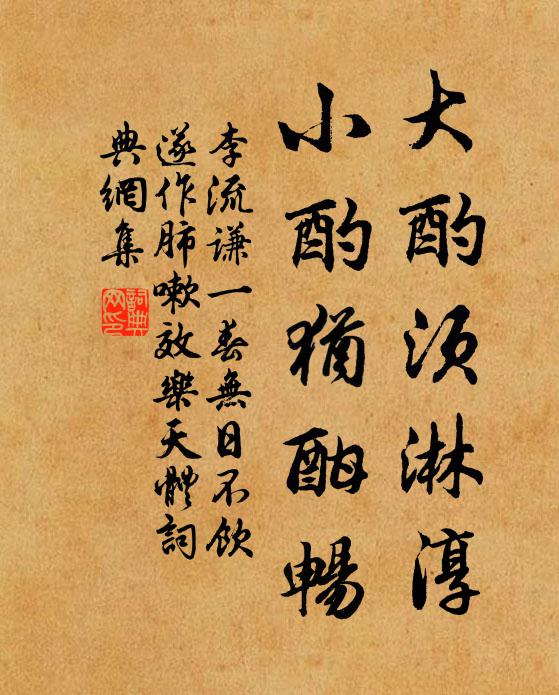 大酌須淋淳
小酌猶酣暢
李流謙一春無日不飲
遂作肺嗽效樂天體詞
典網集
詞典
网印